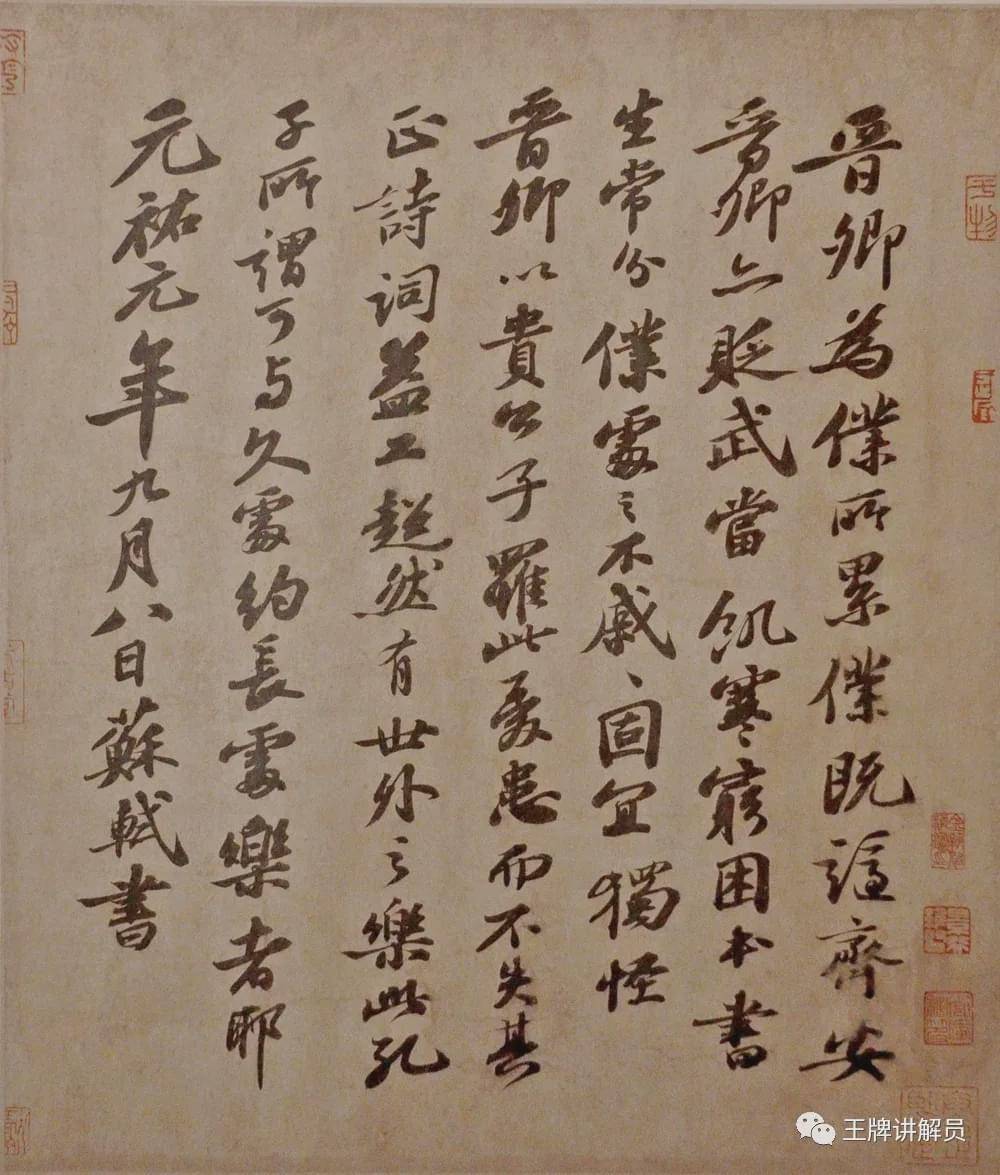 晉卿為僕所累僕既謫齊安
晉卿亦貶武當飢寒窮困本書
生常分僕處之不戚〻固宜獨怪
晉卿以貴公子罹此憂患而不失其
正詩詞益工超然有世外之樂此孔
子所謂可与久處約長處樂者耶
元祐元年九月八日蘇軾書
王牌讲解员